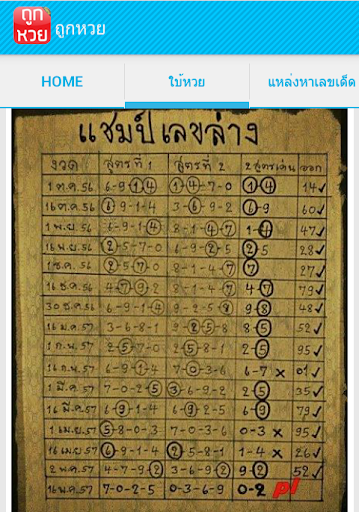 ถูก
หวย
ถูกหวย
HOME ใบ้หวย แหล่งหาเลขเด็ด
แชมป์เลขล่าง
งวด สูตรที่ 1 สูตรที่ 2 2 สูตรเด่น ออก
1 ต.ค. 56 6-9-1-4 1-4-7-0 1-4 14✓
16 ต.ค. 56 6-9-1-4 3-6-9-2 6-9 60✓
1 พ.ย. 56 6-9-1-4 8-1-4-7 1-4 47✓
16 พ.ย. 56 2-5-7-0 6-9-2-5 2-5 28✓
1 ธ.ค. 56 2-5-7-0 8-1-4-7 27✓
16 ธ.ค. 56 4-7-9-2 8-1-4-7 4-7 79✓
30 ธ.ค. 56 6-9-1-4 9-2-5-8 9-8 48✓
16 ม.ค. 57 3-6-8-1 9-2-5-8 8-5 52✓
1 ก.พ. 57 2-5-7-0 2-5-8-1 2-5 95✓
16 ก.พ. 57 6-9-1-4 7-0-3-6 6-7 × 01✓
1 มี.ค. 57 7-0-2-5 3-6-9-2 2-5 35✓
16 มี.ค. 57 6-9-1-4 6-9-2-5 6-9 79✓
1 เม.ย. 57 5-8-0-3 7-0-3-6 0-3 × 95✓
16 เม.ย. 57 6-9-1-4 2-5-8-1 1-4 × 26✓
2 พ.ค. 57 4-7-9-2 3-6-9-2 9-2 52✓
16 พ.ค. 57 7-0-2-5 0-3-6-9 0-2